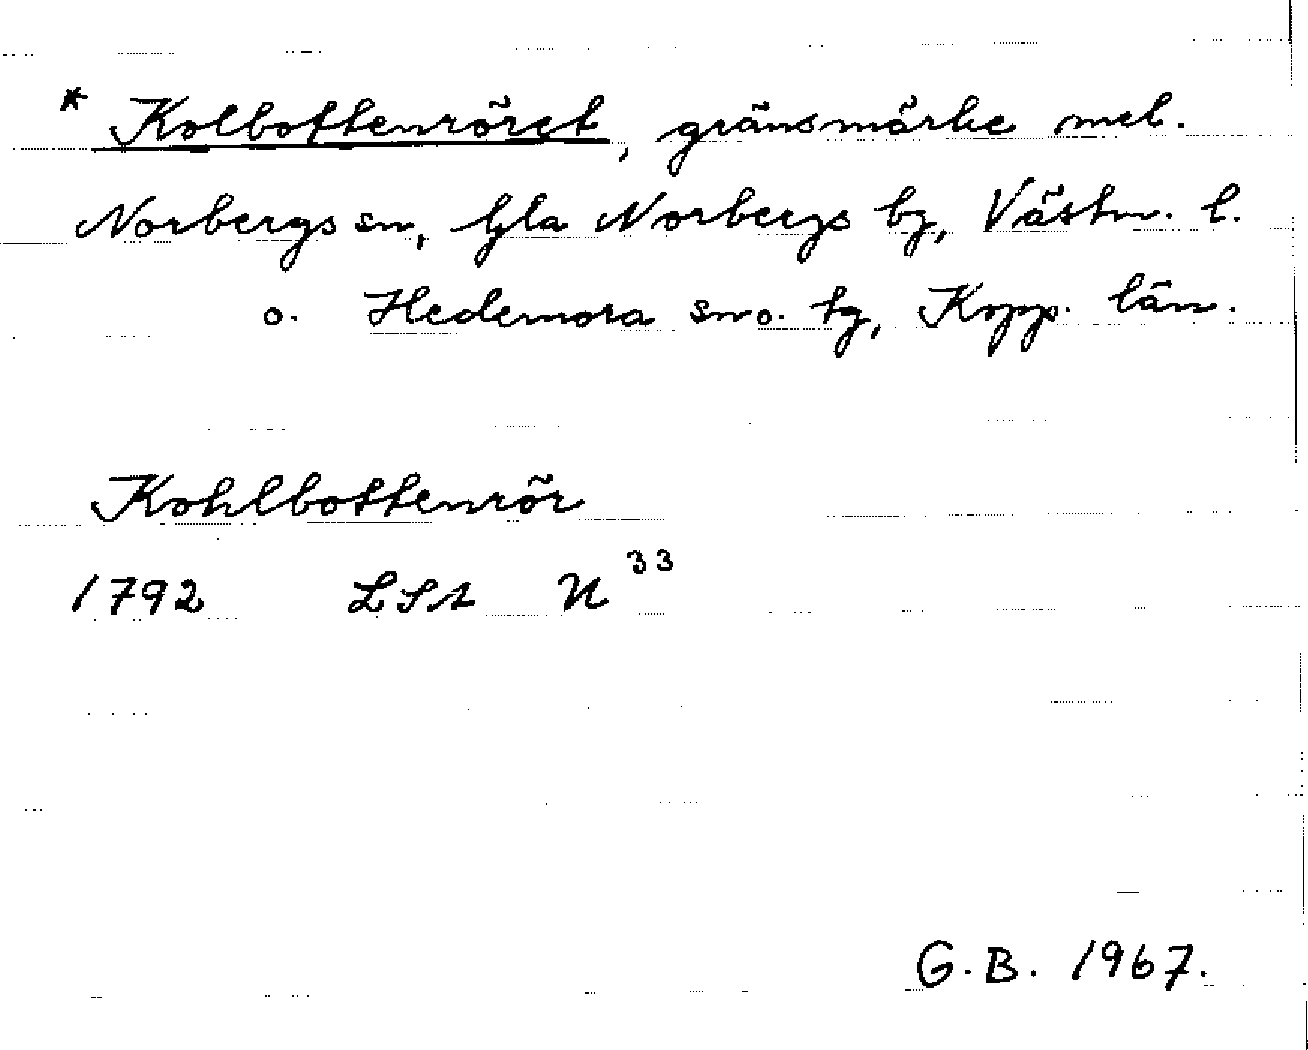 * Kolbottenröret, gränsmärke mel.
Norbergs sn, Gla Norbergs bg, Västm. l.
o. Hedemora sn o. tg, Kopp. län.
Kohlbottenrör
1792 LSA U 33
G.B. 1967.